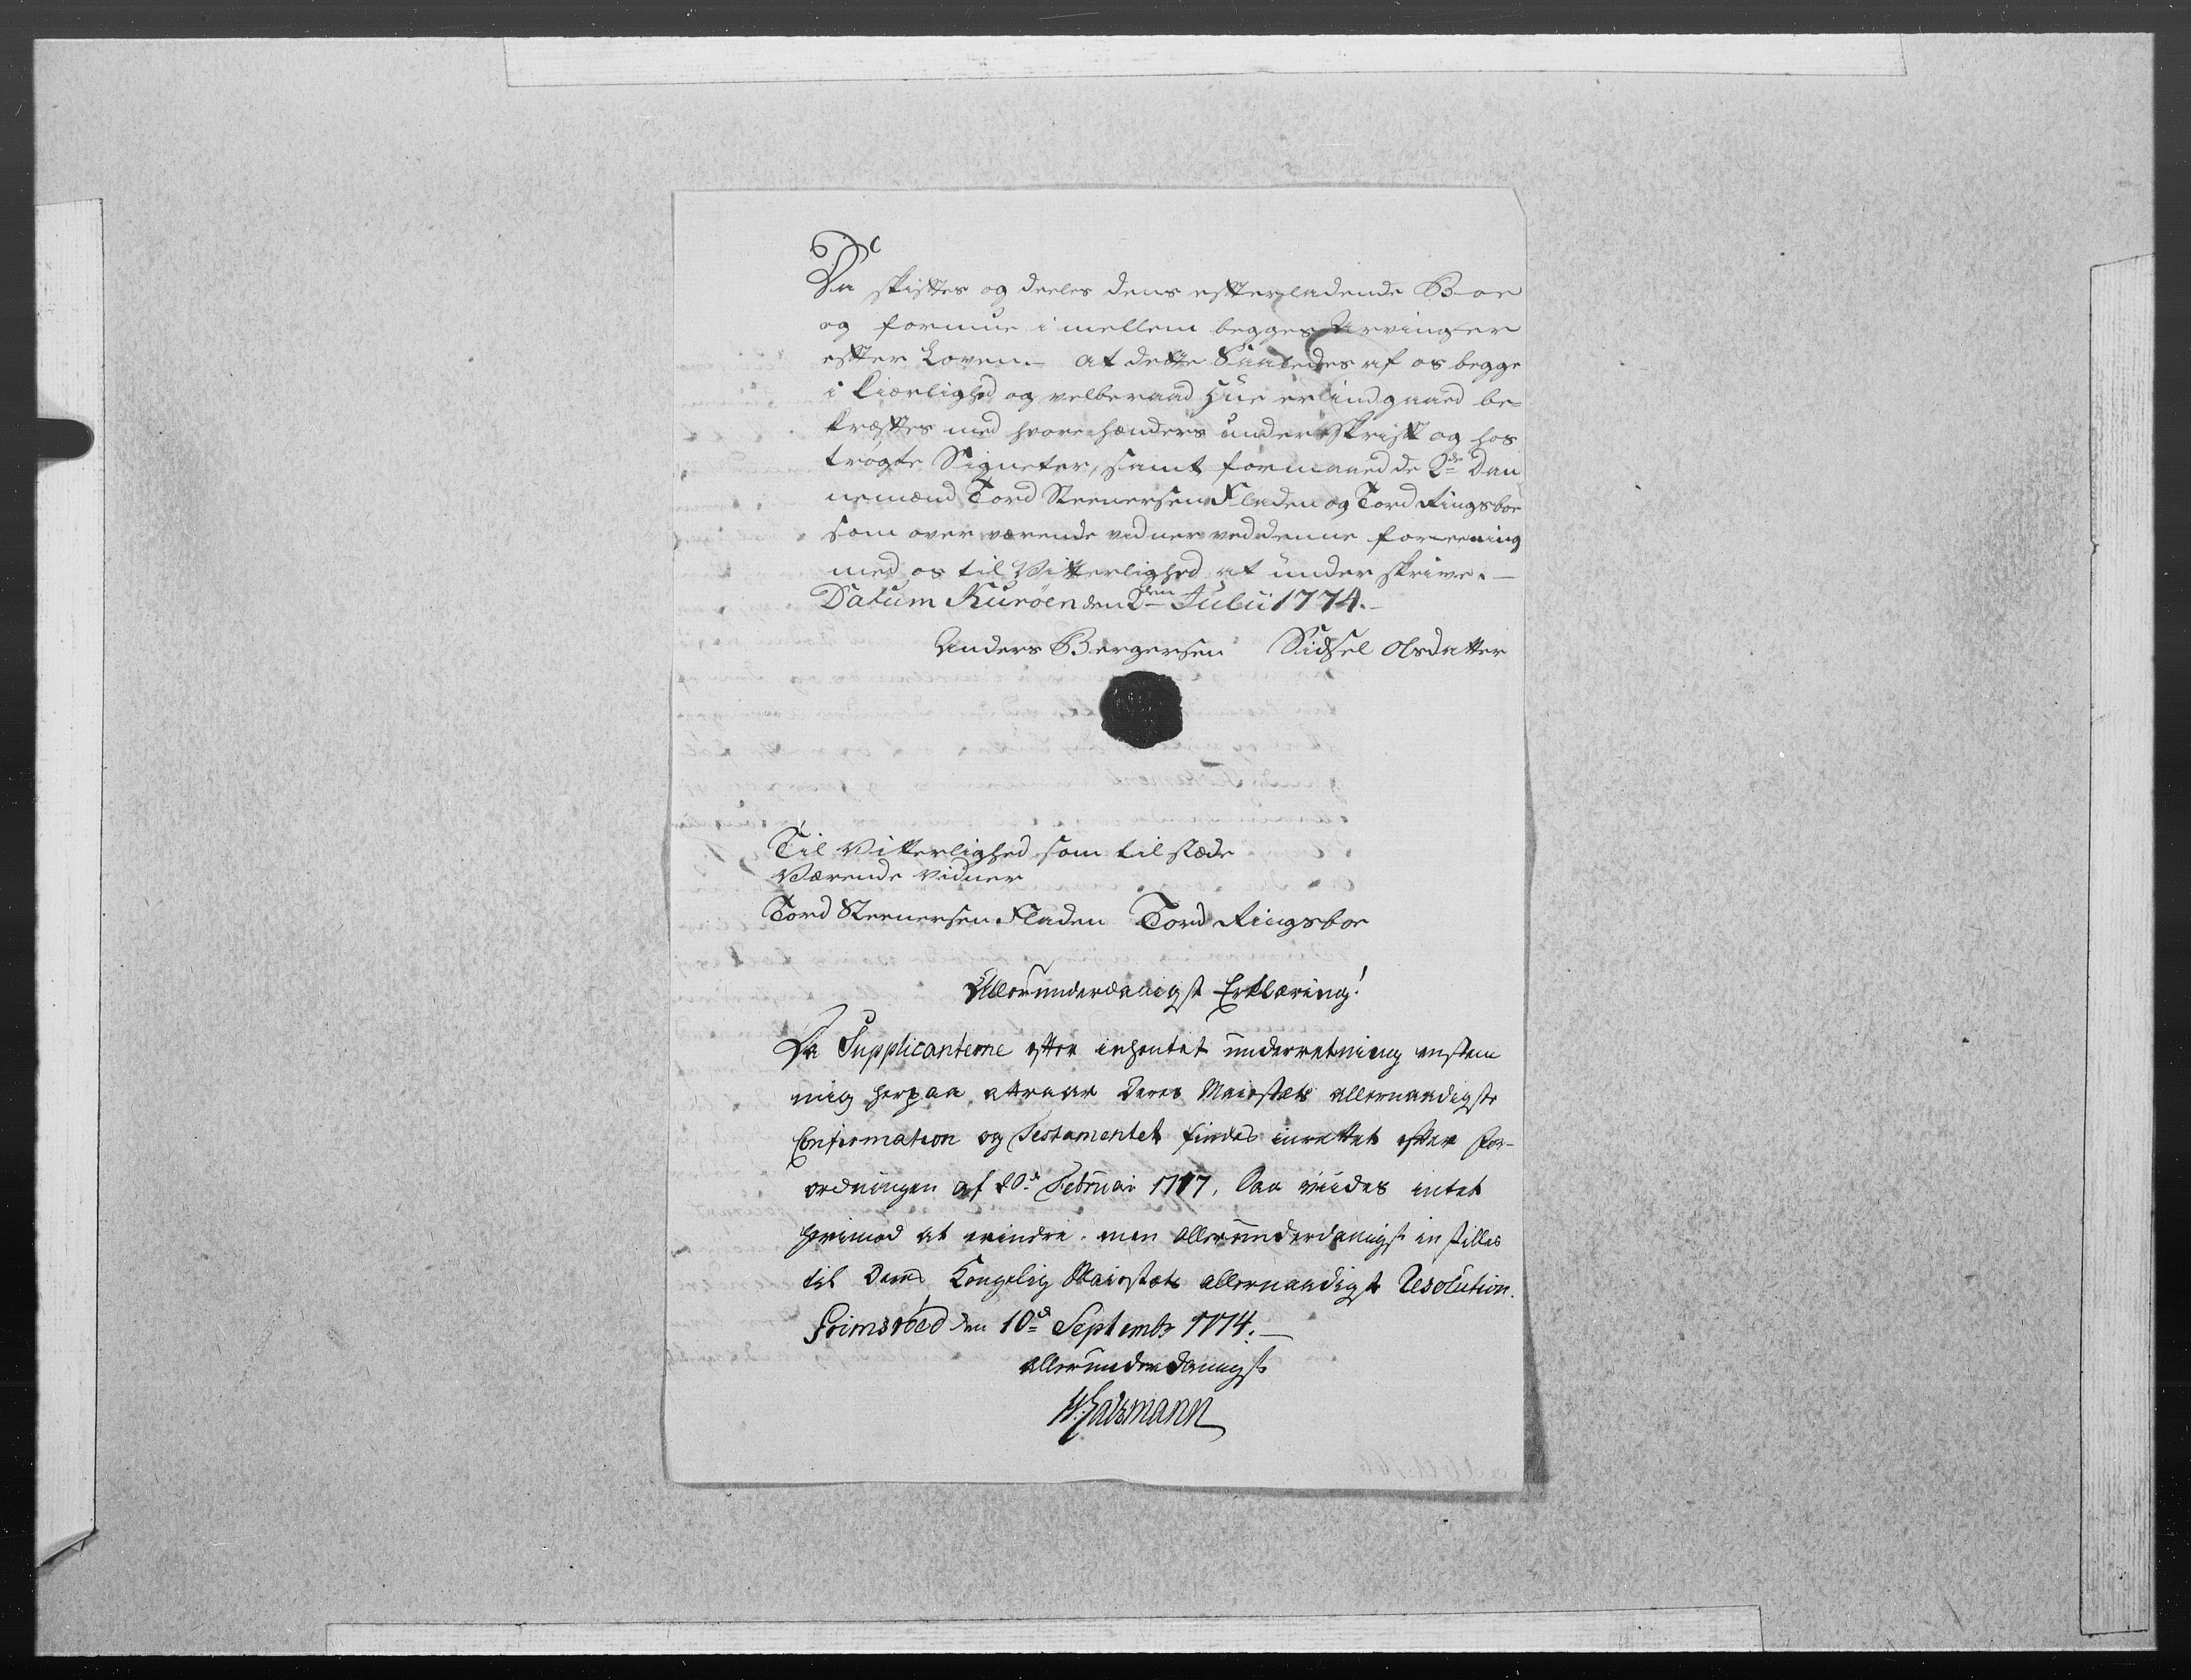 Da skiftes og deeles dens efterladende Boe
og formue i mellem begges Arvinger
efter Loven.- at dette Saaledes af os begge
i Kiærlighd og velberaad Hue er Indgaaed be-
kræftes med hvore hænders underskrift og hos
trøgte Signeter, samt formaaed de 2de Dan
nemænd Tord Steenersen Fladen og Tord Ringsboe
som over værende vidner ved denne foreening
med os til Vitterlighed at underskrive.-
Datum Kuröen den 2den Julii 1774.-
Anders Bergersen Sidsel Olsdatter
Til Vitterlighed som til stæde
Værende Vidner
Tord Steenersen Fladen Tord Ringsboe
Allerunderdanigst Erklæring!
Da Supplicanterne efter inhentet underretning enstem
mig herpaa attraar Deres Maiestæts allernaadigste
Confirmation og Testamentet findes inrettet efter For-
ordningen af d. Februar 1717, Saa viides intet
herimod at erindre. men allerunderdanigst instilles
til Deres Kongelig Maiestæts allernaadigst Resolution.
den 10de Septembr 1774.-
allerunderdanigst